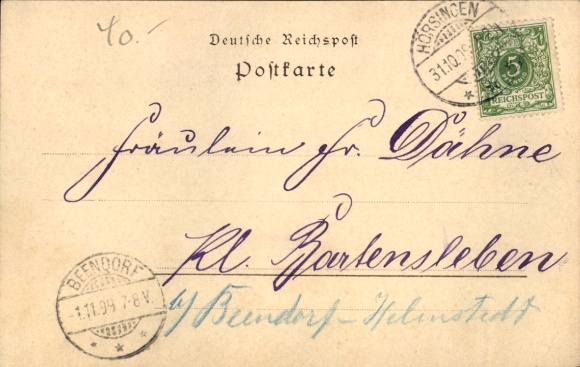 40.-
Deutsche Reichspost
Postkarte
HÖRSINGEN
31.10.99
5
REICHSPOST
Fräulein Fr. Dähne
Kl. Bartensleben
b/ Beendorf-Helmstedt
BEENDORF
-1.11.99 7-8 V.